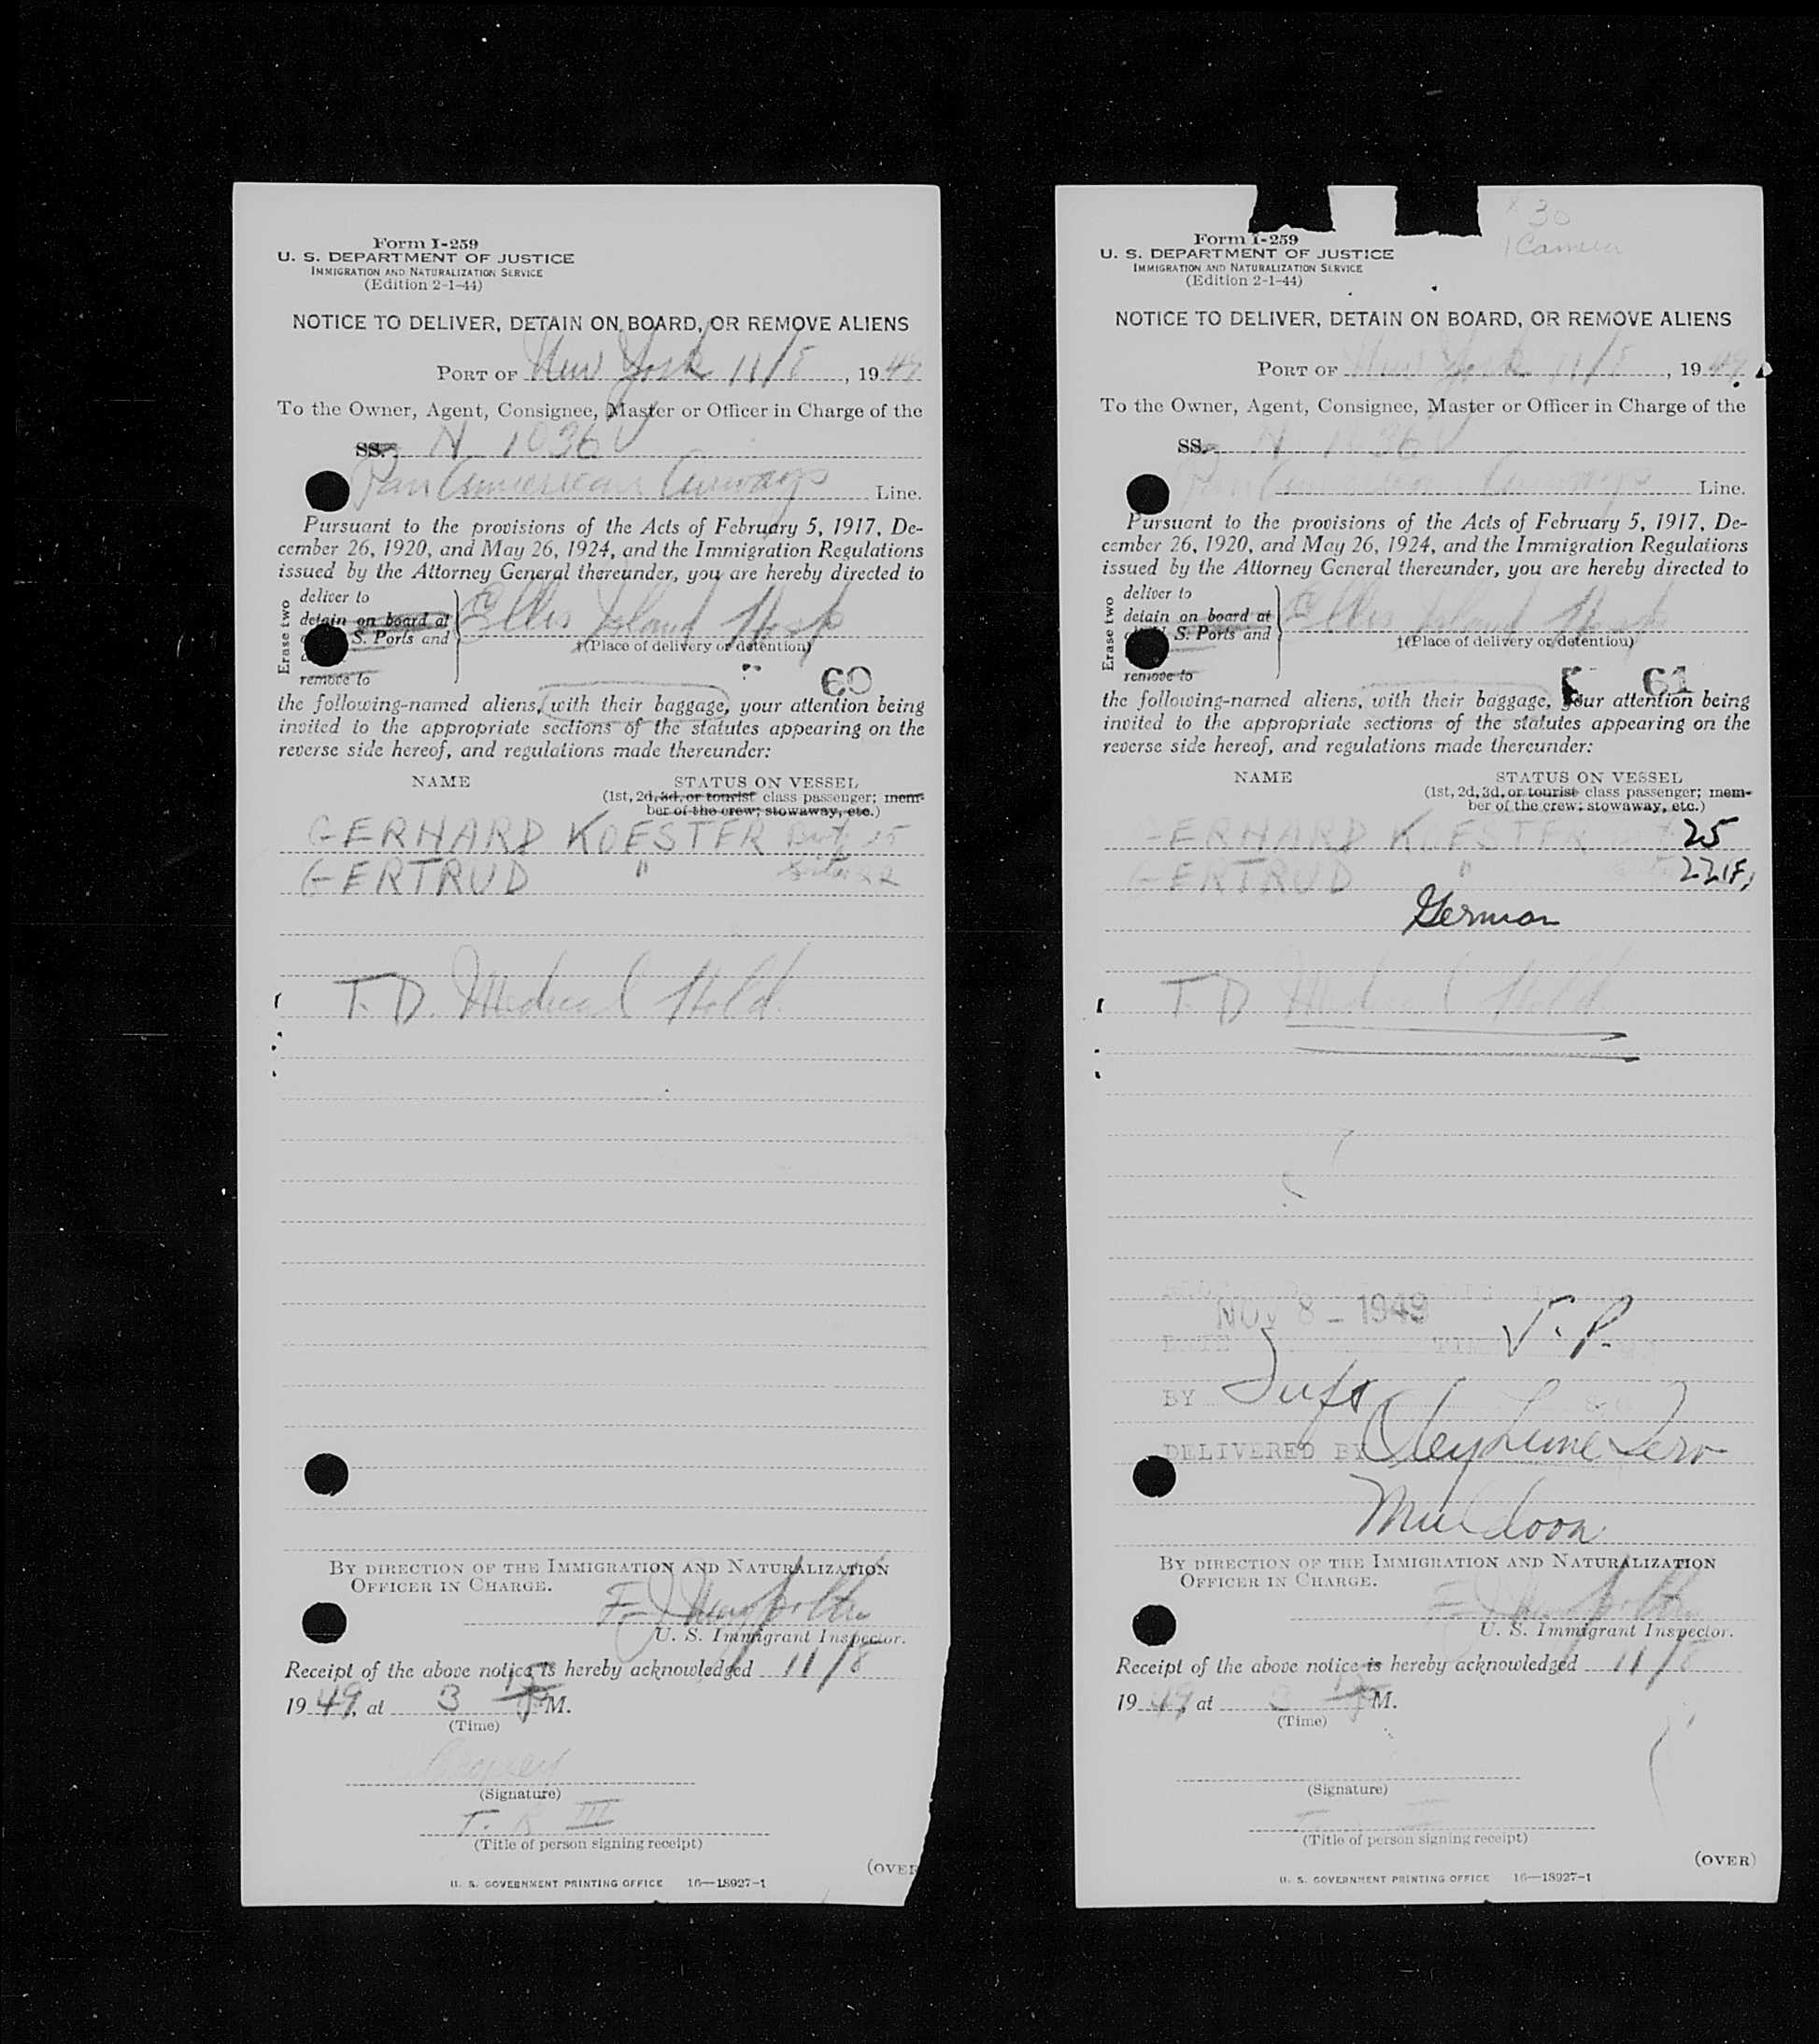 Form I-259
U. S. DEPARTMENT OF JUSTICE
IMMIGRATION AND NATURALIZATION SERVICE
(Edition 2-1-44)
NOTICE TO DELIVER, DETAIN ON BOARD, OR REMOVE ALIENS
PORT OF New York 11/8, 1949
To the Owner, Agent, Consignee, Master or Officer in Charge of the
SS. N 1036 V
Pan American Airways Line.
Pursuant to the provisions of the Acts of February 5, 1917, De-
cember 26, 1920, and May 26, 1924, and the Immigration Regulations
issued by the Attorney General thereunder, you are hereby directed to
Erase two
deliver to
detain on board at
S. Ports and
remove to
Ellis Island Hosp
†(Place of delivery or detention)
60
the following-named aliens, with their baggage, your attention being
invited to the appropriate sections of the statutes appearing on the
reverse side hereof, and regulations made thereunder:
NAME STATUS ON VESSEL
(1st, 2d, 3d, or tourist class passenger; mem-
ber of the crew; stowaway, etc.)
GERHARD KOESTER 25
GERTRUD " 22
T. D. Medical Hold.
BY DIRECTION OF THE IMMIGRATION AND NATURALIZATION
OFFICER IN CHARGE.
U. S. Immigrant Inspector.
Receipt of the above notice is hereby acknowledged 11/8
1949, at 3 P M.
(Time)
(Signature)
T. R III
(Title of person signing receipt)
(OVER
U. S. GOVERNMENT PRINTING OFFICE 16—18927-1
30
1 Camera
Form I-259
U. S. DEPARTMENT OF JUSTICE
IMMIGRATION AND NATURALIZATION SERVICE
(Edition 2-1-44)
NOTICE TO DELIVER, DETAIN ON BOARD, OR REMOVE ALIENS
PORT OF New York 11/8, 1949
To the Owner, Agent, Consignee, Master or Officer in Charge of the
SS. N 1036 V
Pan American Airways Line.
Pursuant to the provisions of the Acts of February 5, 1917, De-
cember 26, 1920, and May 26, 1924, and the Immigration Regulations
issued by the Attorney General thereunder, you are hereby directed to
Erase two
deliver to
detain on board at
S. Ports and
remove to
Ellis Island Hosp
†(Place of delivery or detention)
61
the following-named aliens, with their baggage, your attention being
invited to the appropriate sections of the statutes appearing on the
reverse side hereof, and regulations made thereunder:
NAME STATUS ON VESSEL
(1st, 2d, 3d, or tourist class passenger; mem-
ber of the crew; stowaway, etc.)
GERHARD KOESTER 25
GERTRUD " 22 F
German
T. D Medical Hold.
NOV 8 - 1949
DATE TIME J. P.
BY
DELIVERED BY
Muldoon
BY DIRECTION OF THE IMMIGRATION AND NATURALIZATION
OFFICER IN CHARGE.
U. S. Immigrant Inspector.
Receipt of the above notice is hereby acknowledged 11/8
1949, at 3 P M.
(Time)
(Signature)
(Title of person signing receipt)
(OVER)
U. S. GOVERNMENT PRINTING OFFICE 16—18927-1